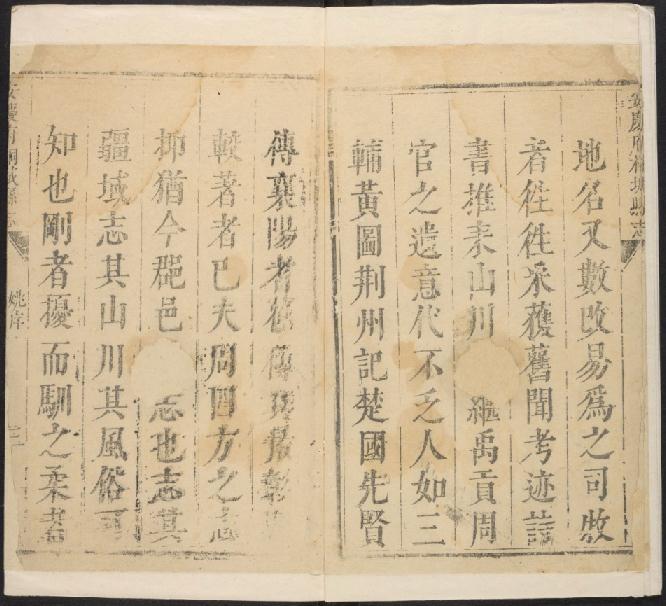 安慶府桐城縣志
地名又數改易爲之司牧
者往往采穫舊聞考迹詩
書推表山川 繼禹貢周
官之遺意代不乏人如三
輔黃圖荆州記楚國先賢
傳襄陽耆舊傳其最彰
較著者已夫周四方之志
抑猶今郡邑 志也志其
疆域志其山川其風俗可
知也剛者擾而馴之柔者
安慶府桐城縣志 姚序 三